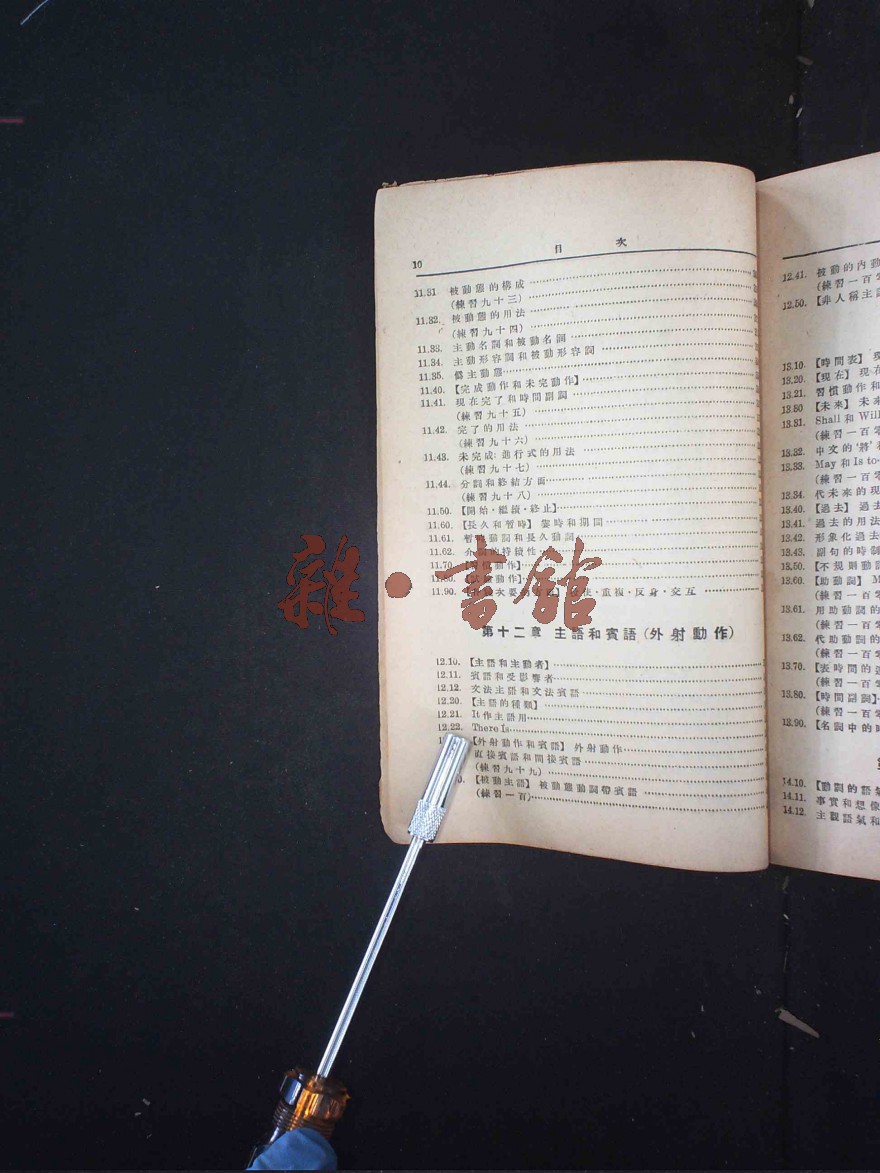 10
目 次
11.31 被動態的構成
(練習九十三)
11.32. 被動態的用法
(練習九十四)
11.33. 主動名詞和被動名詞
11.34. 主動形容詞和被動形容詞
11.35. 僞主動態
11.40. 【完成動作和未完動作】
11.41. 現在完了和時間副詞
(練習九十五)
11.42. 完了的用法
(練習九十六)
11.43. 未完成:進行式的用法
(練習九十七)
11.44. 分詞和終結方面
(練習九十八)
11.50. 【開始·繼續·終止】
11.60. 【長久和暫時】 霎時和期間
11.61. 暫時動詞和長久動詞
11.62. 介詞的持續性
11.70. 【習慣動作】
11.80. 【試驗動作】
11.90. 使·重複·反身·交互
雜·書館
第十二章 主語和賓語(外射動作)
12.10. 【主語和主動者】
12.11. 賓語和受影響者
12.12. 文法主語和文法賓語
12.20. 【主語的種類】
12.21. It作主語用
12.22. There Is
【外射動作和賓語】 外射動作
直接賓語和間接賓語
(練習九十九)
【被動主語】 被動態動詞帶賓語
(練習一百)
12.41. 被動的內動
(練習一百零
12.50. 【非人稱主語
13.10. 【時間表】 現
13.20. 【現在】 現在
13.21. 習慣動作和
13.30 【未來】 未來
13.31. Shall 和 Will
(練習一百零
13.32. 中文的‘將’
13.33. May 和 Is to
(練習一百零
13.34. 代未來的現
13.40. 【過去】 過去
13.41. 過去的用法
13.42. 形象化過去
13.43. 副句的時制
13.50. 【不規則動詞
13.60. 【助動詞】 M
(練習一百零
13.61. 用助動詞的
(練習一百零
13.62. 代助動詞的
(練習一百零
13.70. 【表時間的
(練習一百零
13.80. 【時間副詞】
(練習一百零
13.90. 【名詞中的時
14.10. 【動詞的語氣
14.11. 事實和想像
14.12. 主觀語氣和